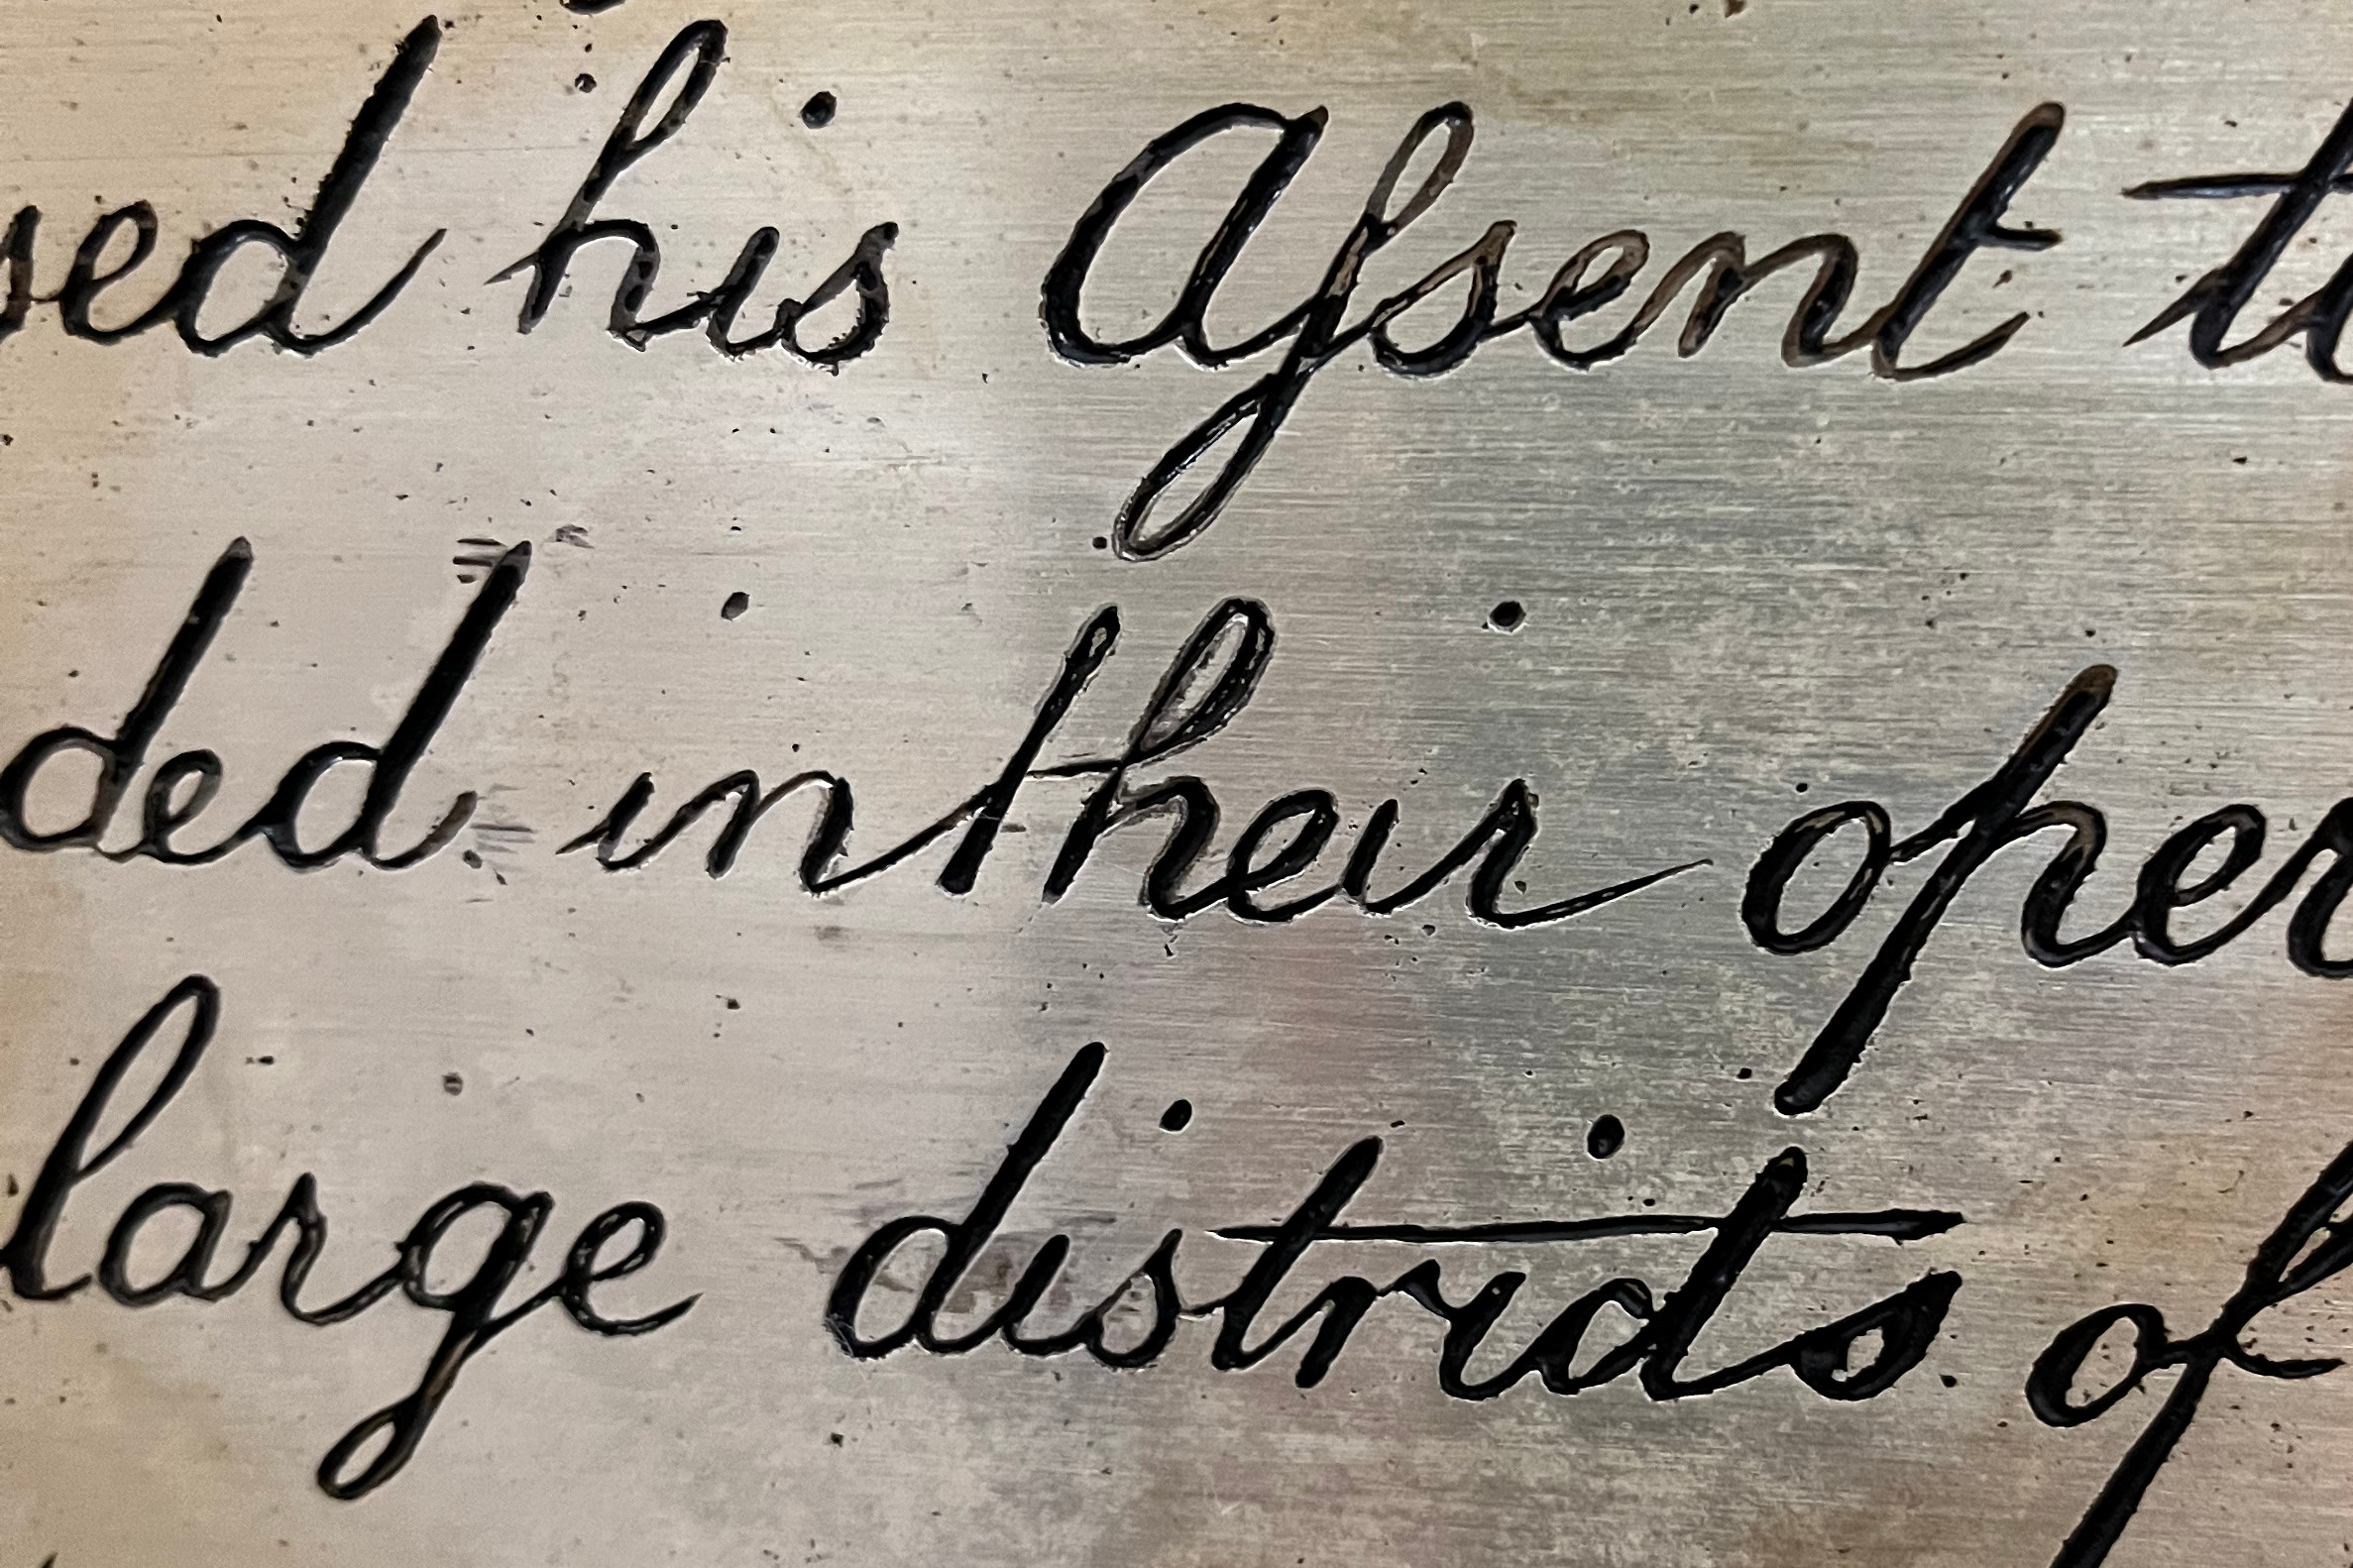 sed his Aſsent to
ded in their oper
large districts of